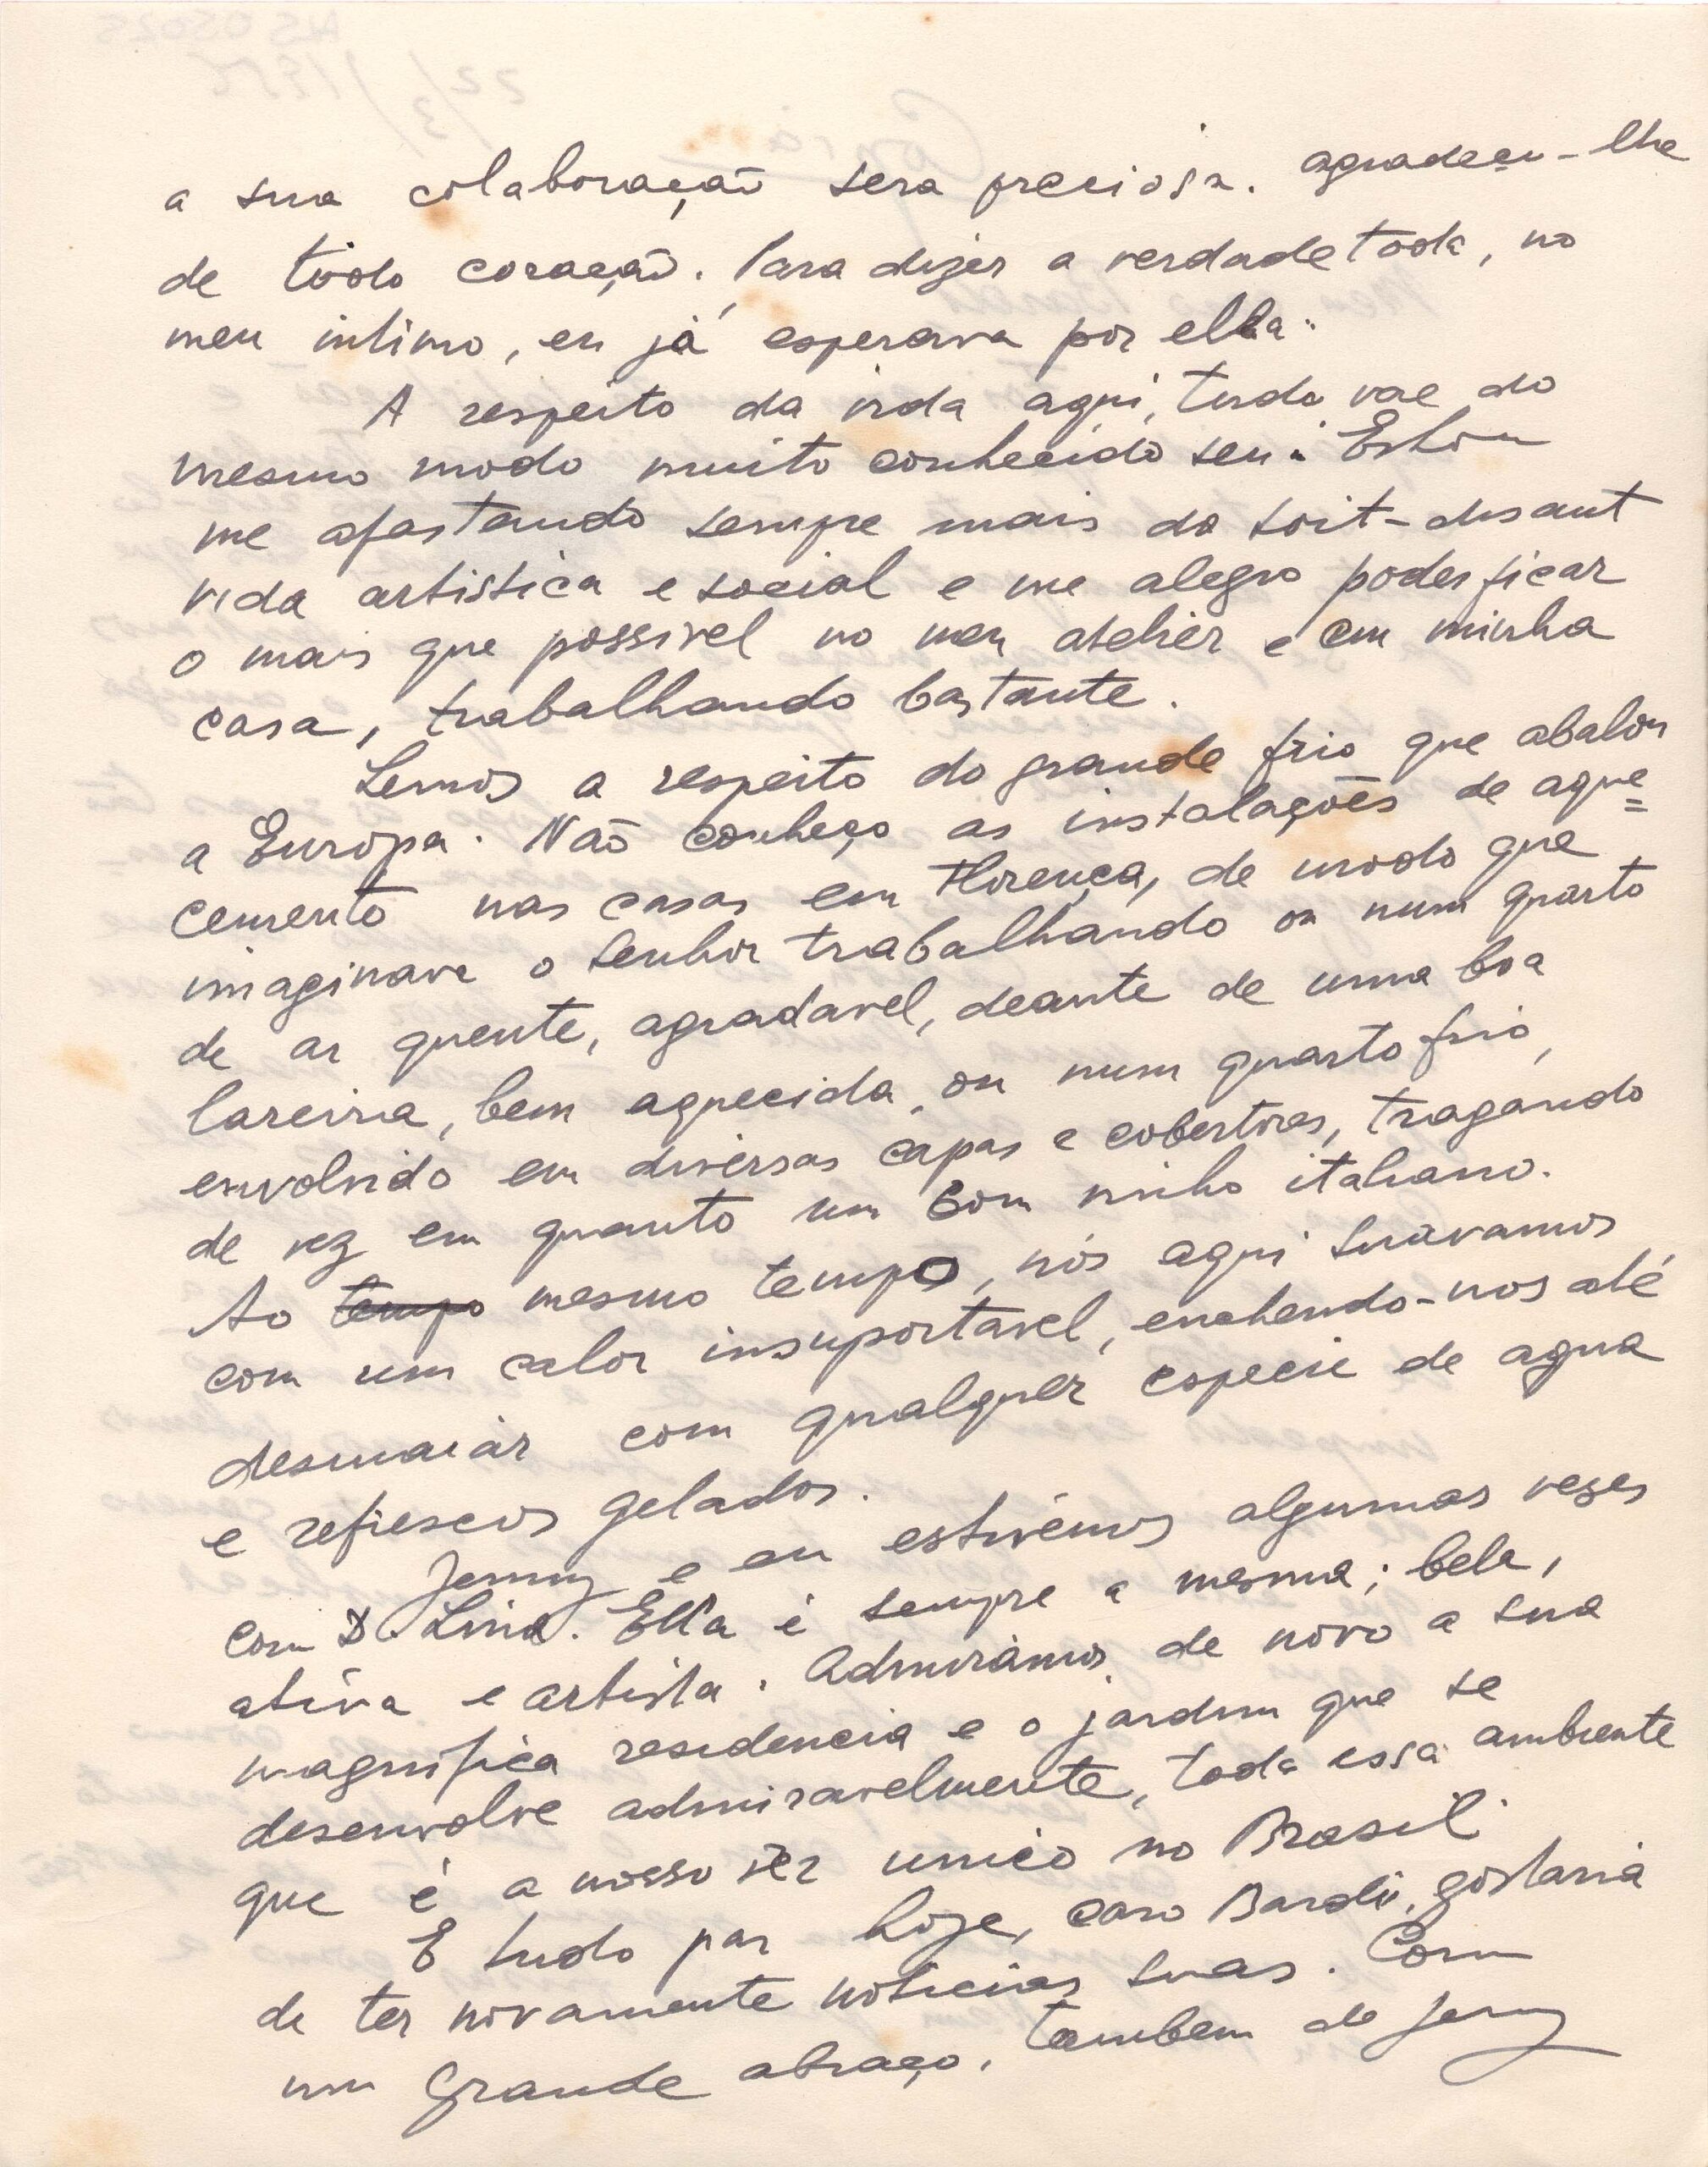 a sua colaboração sera preciosa. agradeçu-lhe
de tôdo coração. Para dizer a verdade toda, no
meu intimo, eu já esperava por ella.
A respeito da vida aqui, tudo vae do
mesmo modo muito conhecido seu. Estou
me afastando sempre mais da soit-disant
vida artistica e social e me alegro poder ficar
o mais que possivel no meu atelier e em minha
casa, trabalhando bastante.
Lemos a respeito do grande frio que abalou
a Europa. Não conheço as instalações de aque=
cemento nas casas em Florença, de modo que
imaginava o senhor trabalhando ou num quarto
de ar quente, agradavel, deante de uma boa
lareira, bem aquecida, ou num quarto frio,
envolvido em diversas capas e cobertores, tragando
de vez em quanto um bom vinho italiano.
Ao tempo mesmo tempo, nós aqui suavamos
com um calor insuportavel, enchendo-nos até
desmaiar com qualquer especie de agua
e refrescos gelados.
Jenny e eu estivémos algumas vezes
com D. Lina. Ella é sempre a mesma; bela,
ativa e artista. Admirámos de novo a sua
magnifica residencia e o jardim que se
desenvolve admiravelmente, toda essa ambiente
que é a nosso vêr unico no Brasil.
E tudo par hoje, caro Bardi, gostaria
de ter novamente noticias suas. Com
um grande abraço, tambem de Jenny